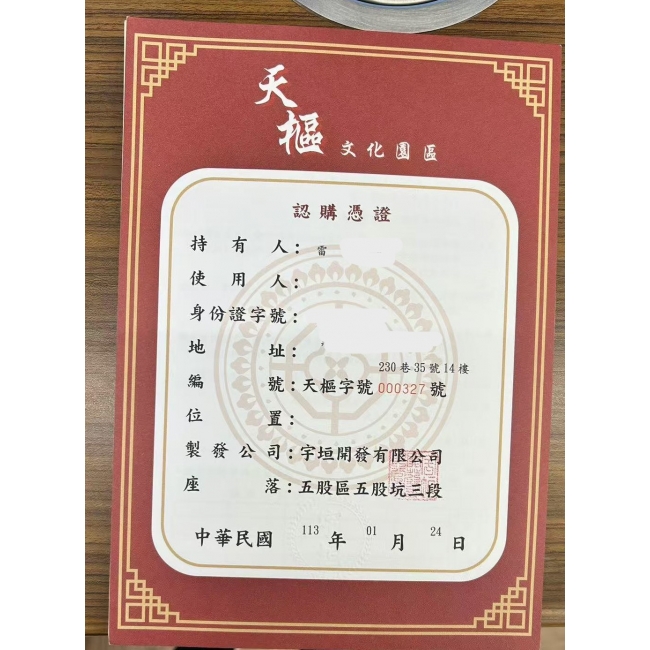 天樞
文化園區
認購憑證
持有人：雷
使用人：
身份證字號：
地址：
230巷35號14樓
編號：天樞字號000327號
位置：
製發公司：宇垣開發有限公司
座落：五股區五股坑三段
中華民國 113 年 01 月 24 日